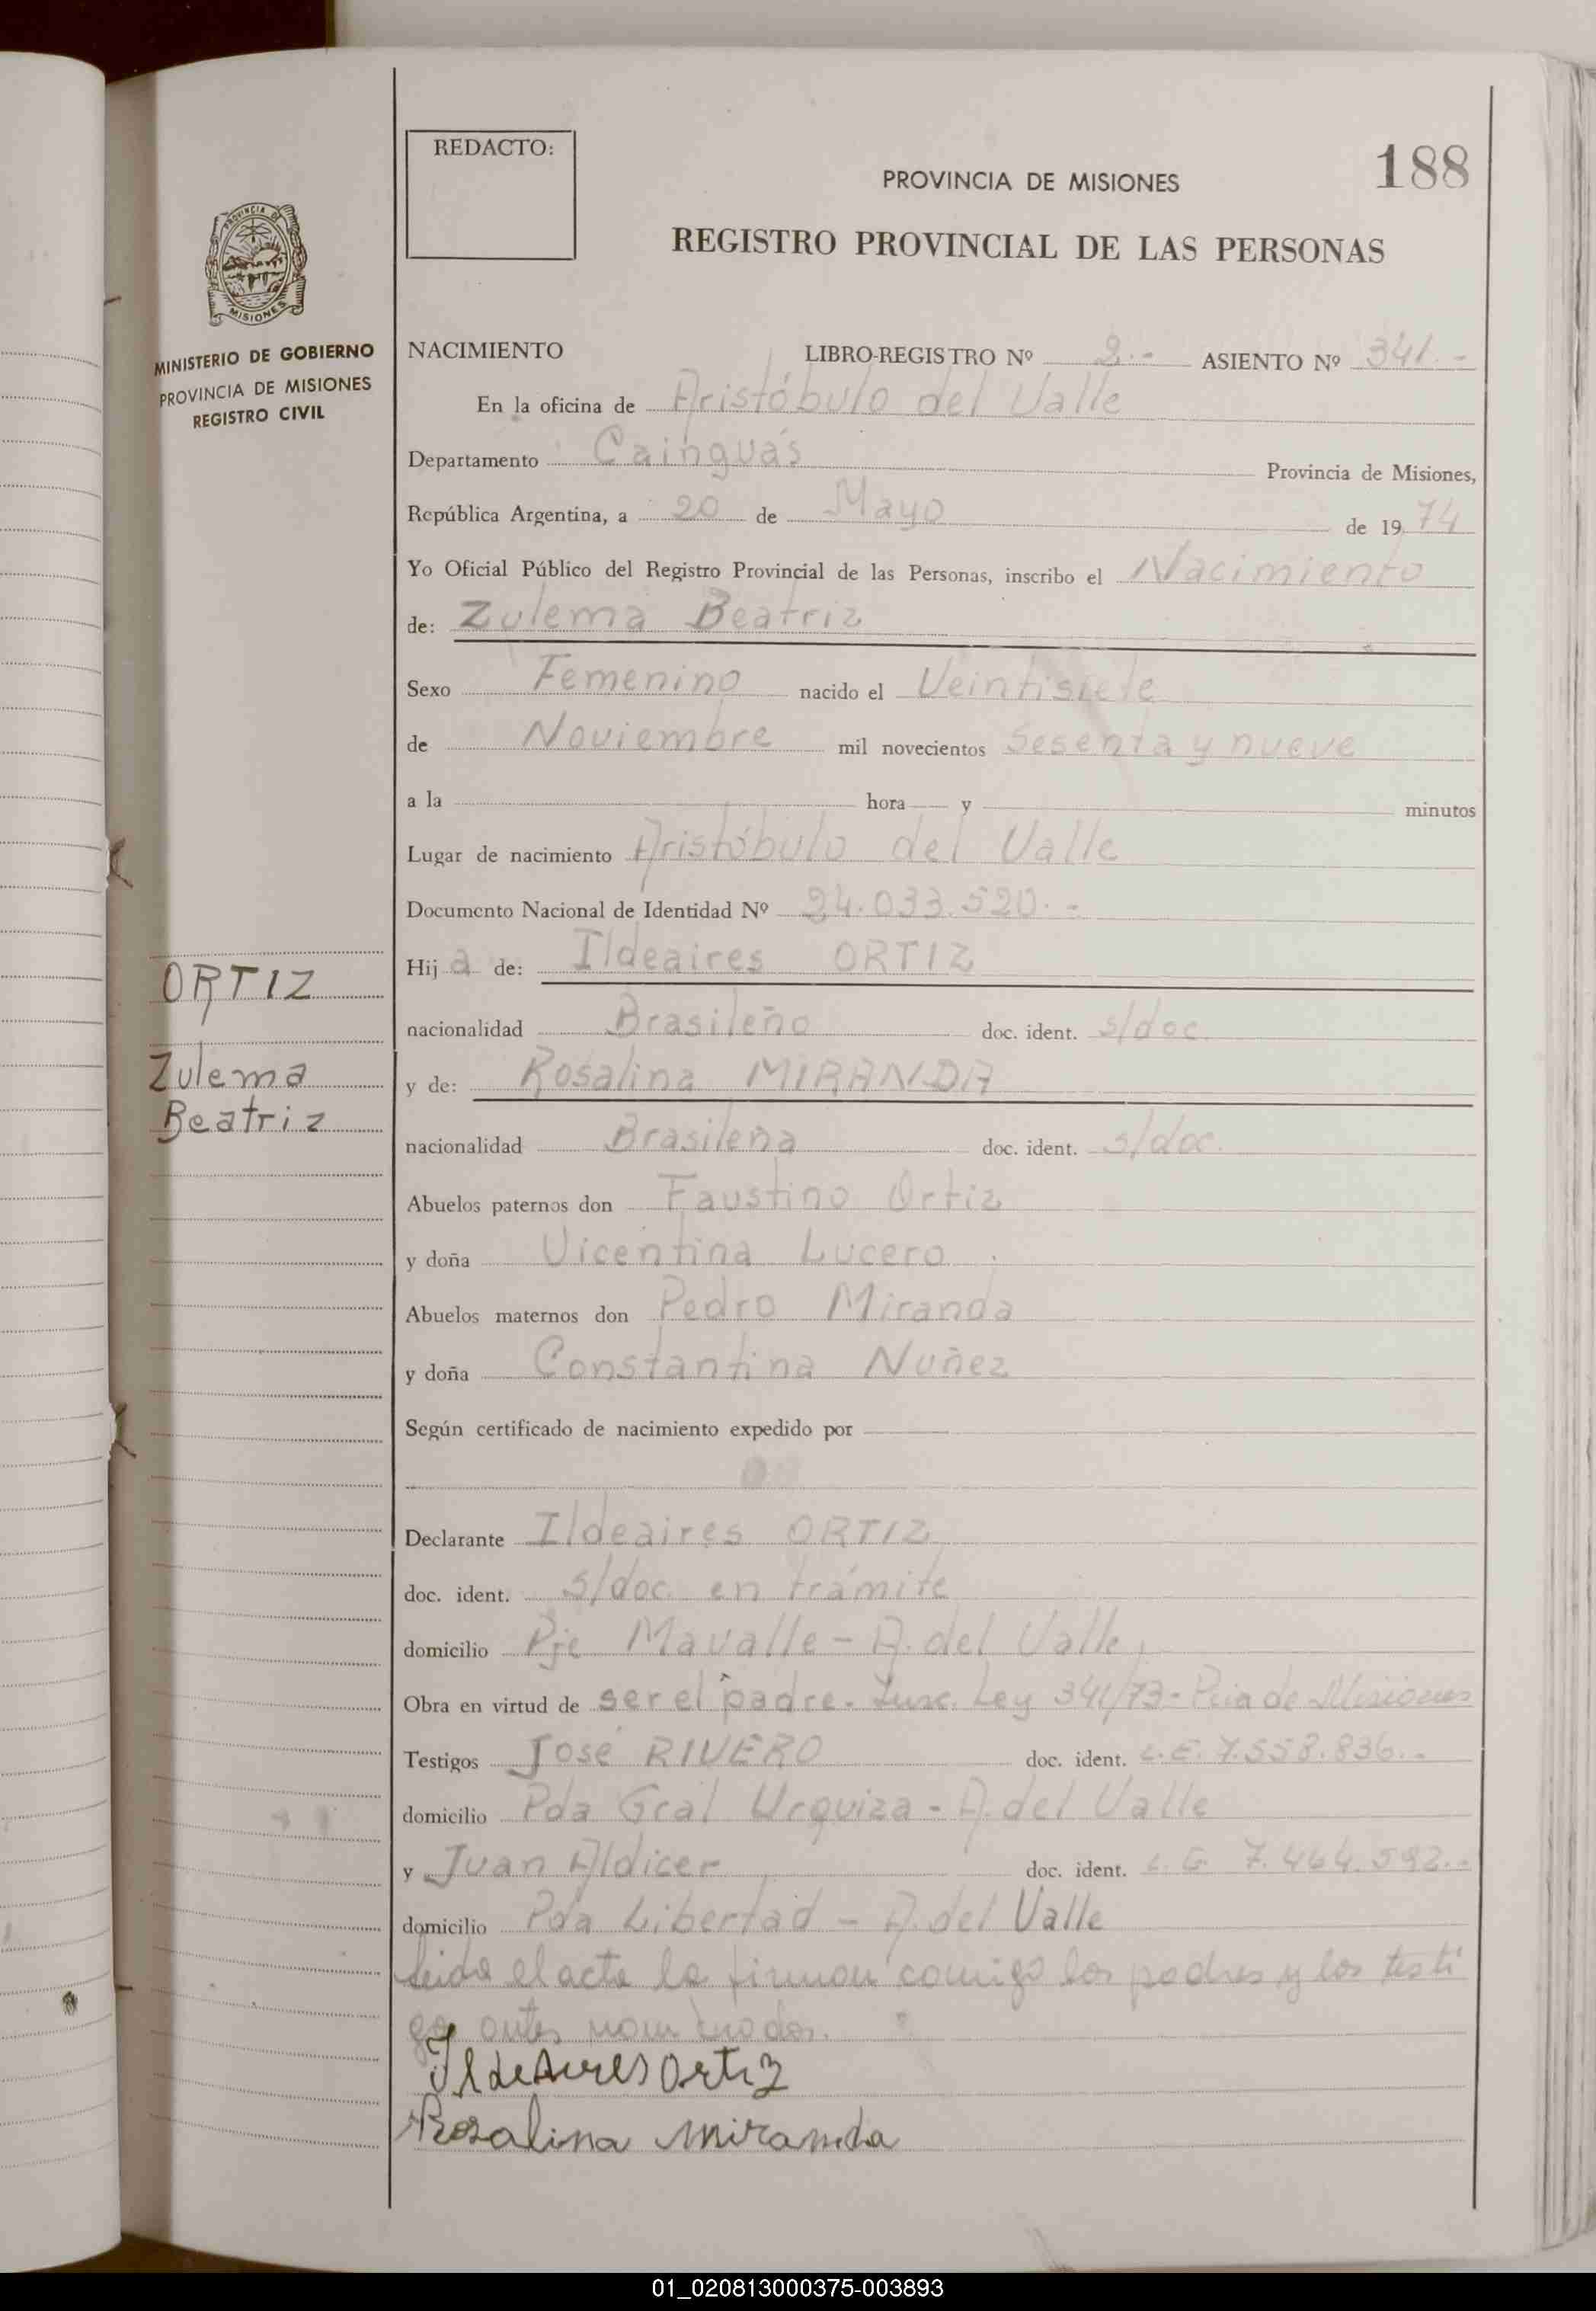 REDACTO:
188
PROVINCIA DE MISIONES
REGISTRO PROVINCIAL DE LAS PERSONAS
PROVINCIA DE
MISIONES
MINISTERIO DE GOBIERNO
PROVINCIA DE MISIONES
REGISTRO CIVIL
NACIMIENTO LIBRO-REGISTRO Nº 2.- ASIENTO Nº 341.-
En la oficina de Aristóbulo del Valle
Departamento Cainguás Provincia de Misiones,
República Argentina, a 20 de Mayo de 1974
Yo Oficial Público del Registro Provincial de las Personas, inscribo el Nacimiento
de: Zulema Beatriz
Sexo Femenino nacido el Veintisiete
de Noviembre mil novecientos Sesenta y nueve
a la hora y minutos
Lugar de nacimiento Aristóbulo del Valle
Documento Nacional de Identidad Nº 24.033.520.-
Hija de: Ildeaires ORTIZ
nacionalidad Brasileño doc. ident. s/doc.
y de: Rosalina MIRANDA
nacionalidad Brasileña doc. ident. s/doc.
Abuelos paternos don Faustino Ortiz
y doña Vicentina Lucero
Abuelos maternos don Pedro Miranda
y doña Constantina Nuñez
Según certificado de nacimiento expedido por
Declarante Ildeaires ORTIZ
doc. ident. s/doc. en trámite
domicilio Pje Mavalle - A. del Valle
Obra en virtud de ser el padre. Insc. Ley 341/73 - Pcia de Misiones
Testigos José RIVERO doc. ident. L.E. 7.558.836.-
domicilio Pda Gral Urquiza - A. del Valle
y Juan Aldicer doc. ident. 7.464.592.-
domicilio Pda Libertad - A. del Valle
Leida el acta la firman comigo los padres y los testi
gos antes nombrados.
Ildeaires Ortiz
Rosalina Miranda
ORTIZ
Zulema
Beatriz
01_020813000375-003893